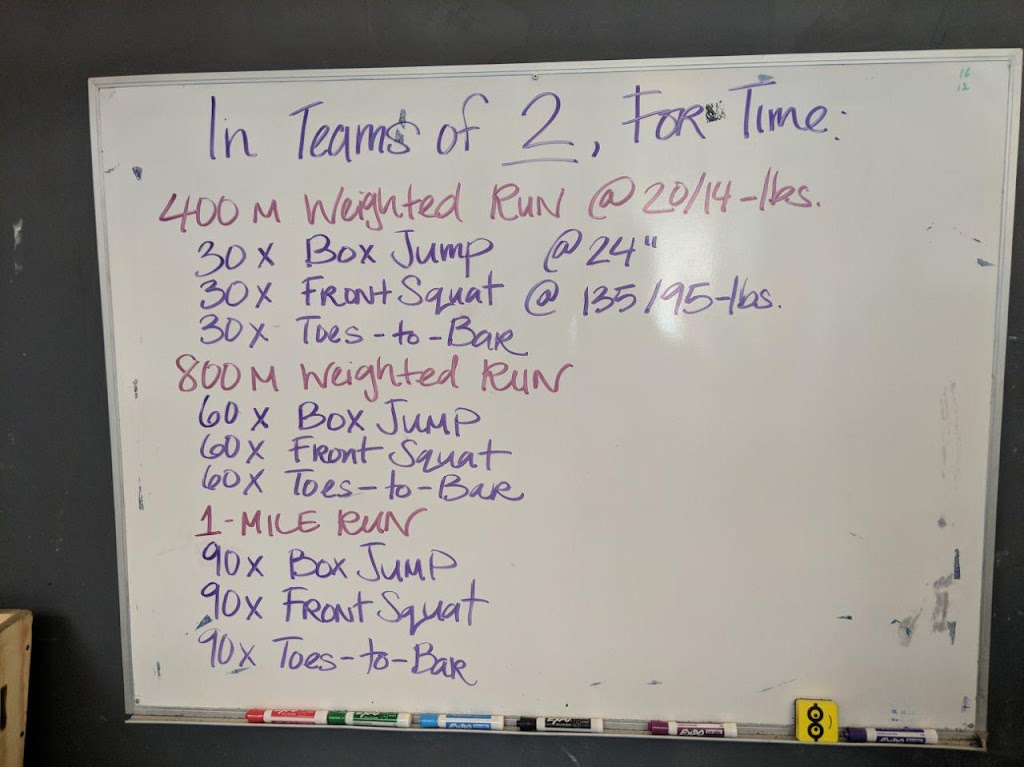 In Teams of 2, FOR Time:
16
12
400 M Weighted RUN @ 20/14-lbs.
30x Box Jump @ 24"
30x FRONT Squat @ 135/95-lbs.
30x Toes-to-BAR
800 M Weighted RUN
60x BOX JUMP
60x Front Squat
60x Toes-to-BAR
1-MILE RUN
90x Box JUMP
90x FRONT Squat
90x Toes-to-BAR
EXPO
EXPO
EXPO
EXPO